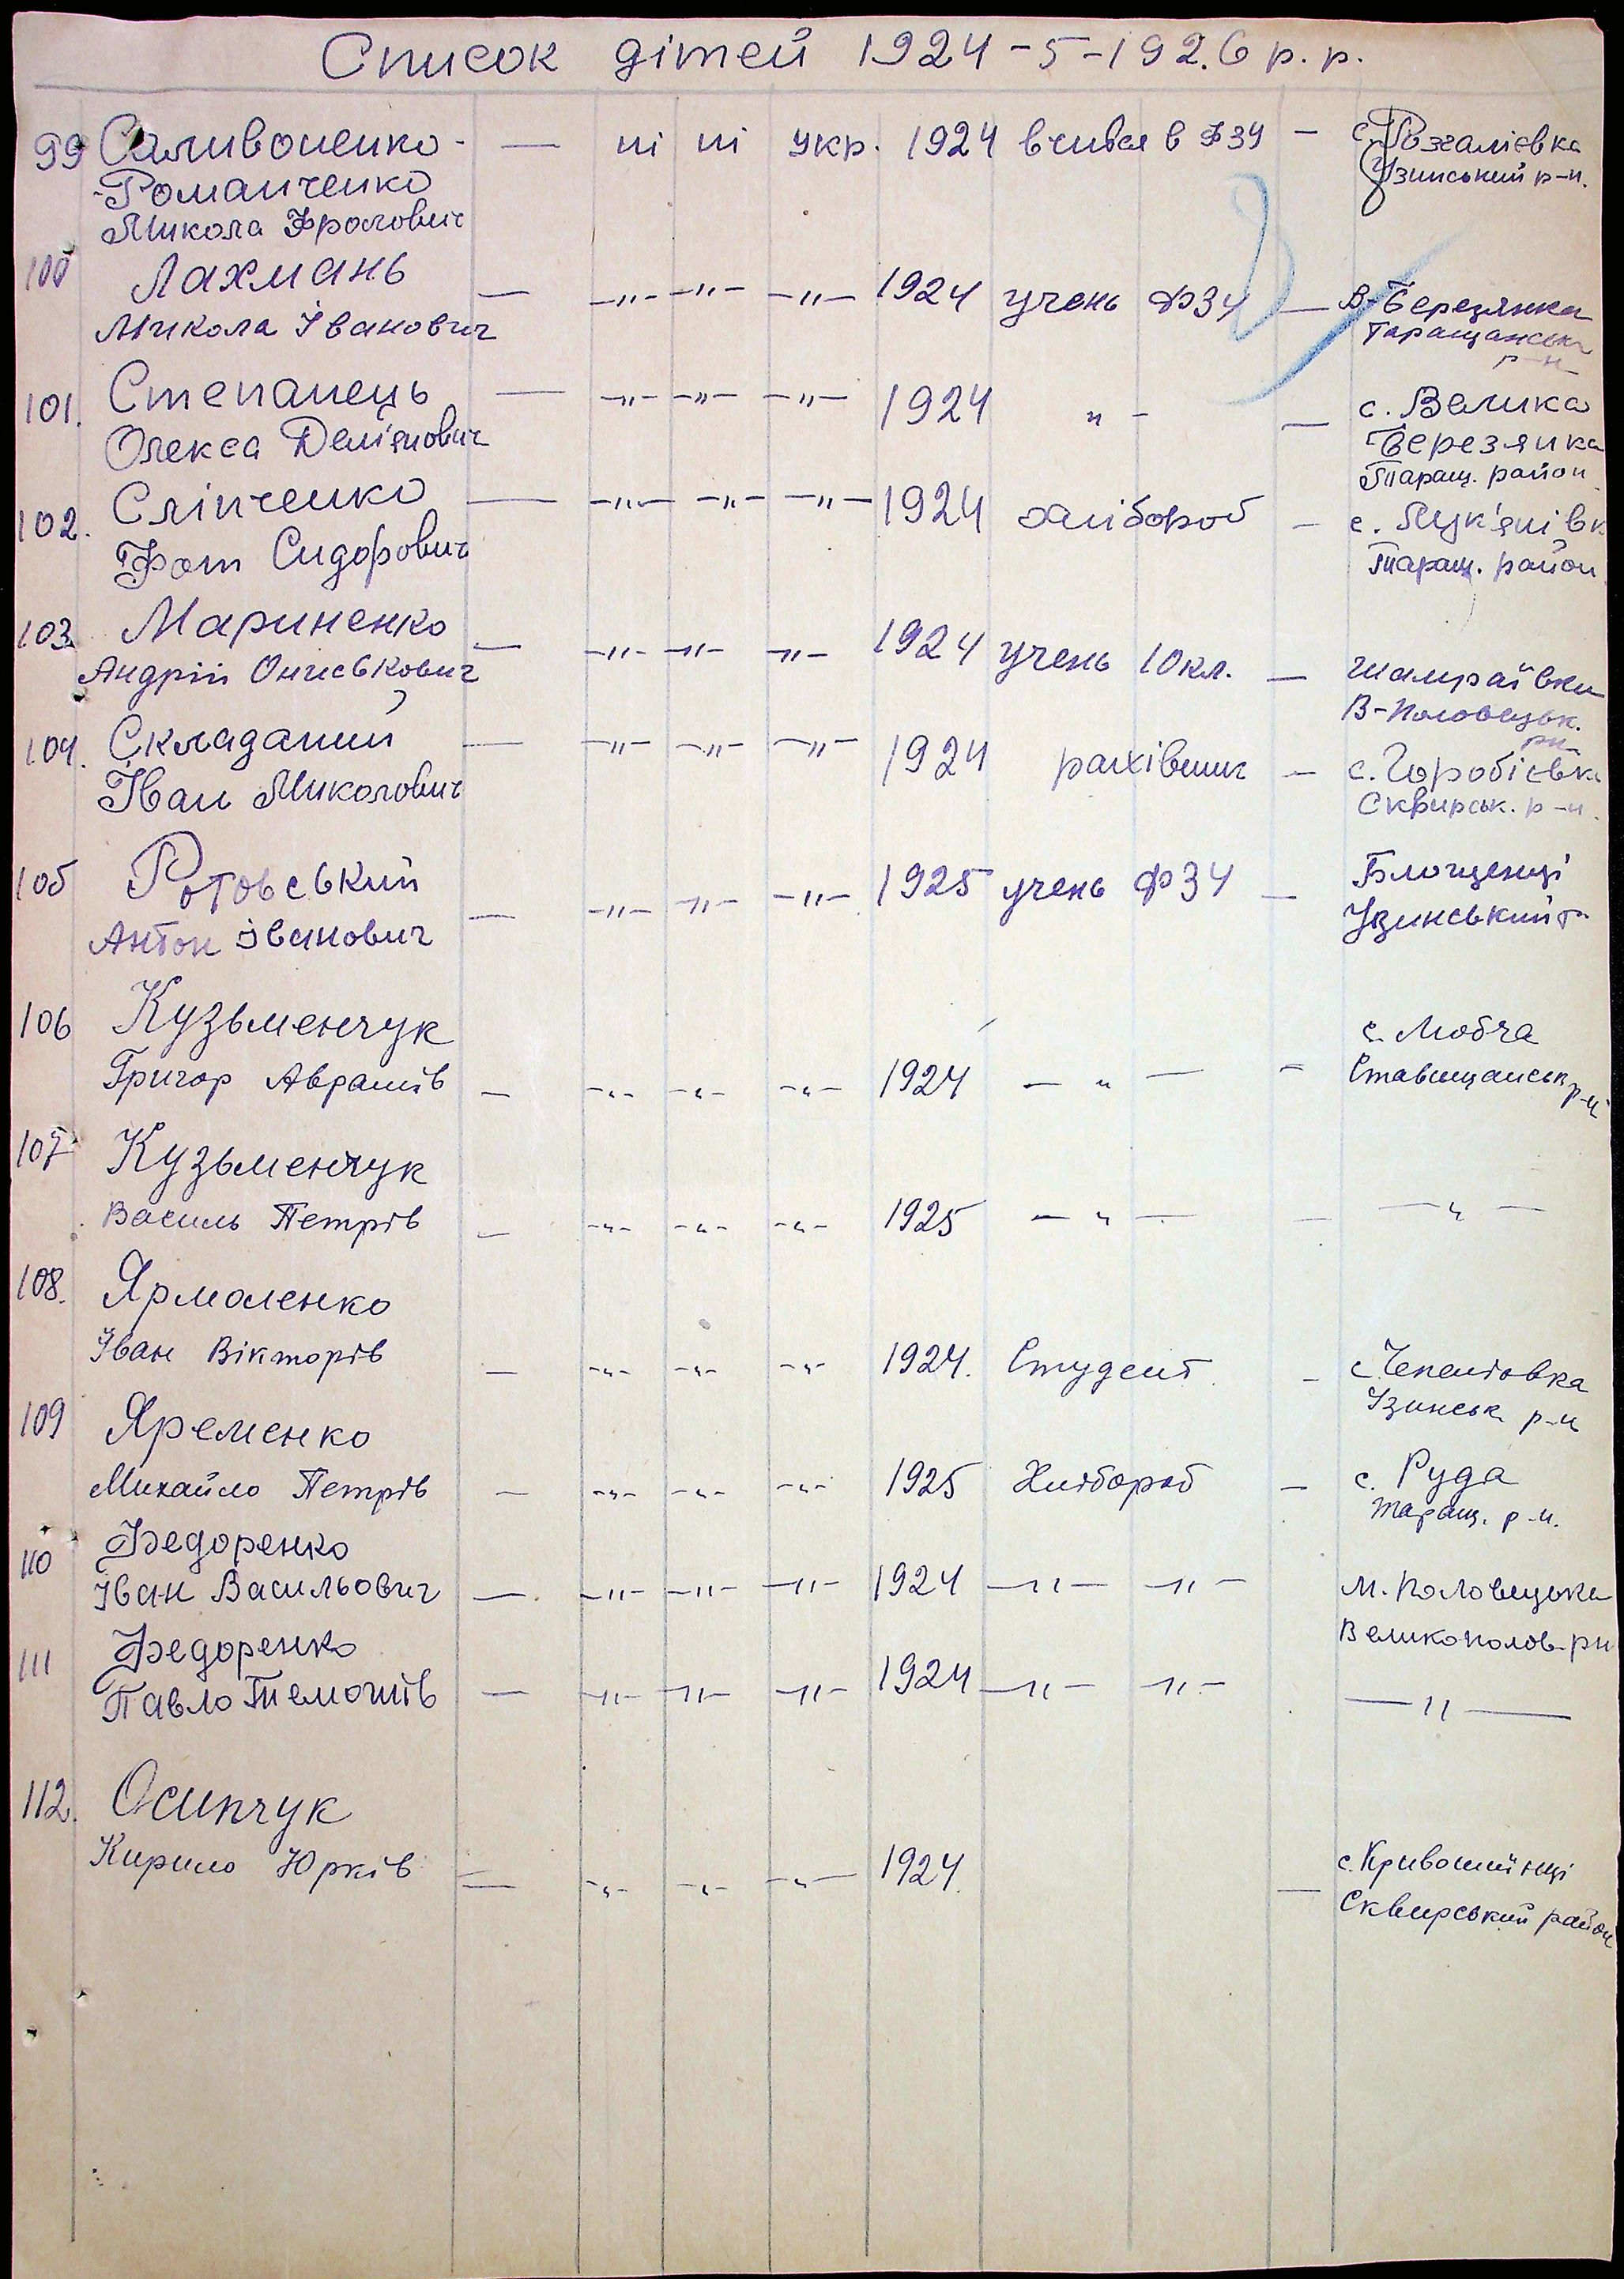 Список дітей 1924-5-1926 р.р.
99 Саливоненко- — ні ні укр. 1924 вчився в ФЗУ — с. Розаліевка
-Романченко Узинський р-н.
Микола Фролович
100 Лахмань
Микола Іванович — -"- -"- -"- 1924 учень ФЗУ — В-Березянка
Таращанськ
р-н
101. Степанець — -"- -"- -"- 1924 " - — с. Велика
Олекса Дем'янович Березянка
Таращ. район
102. Сліпченко — -"- -"- -"- 1924 хлібороб — с. Лук'янівк
Фот Сидорович Таращ. район
103. Мариненко — -"- -"- -"- 1924 учень 10 кл. — Шамраївка
Андрій Ониськович В-Половецьк.
рн
104. Складаний — -"- -"- -"- 1924 рахівник — с. Горобіевка
Іван Миколович Сквирськ. р-н.
105 Ротовський — -"- -"- -"- 1925 учень ФЗУ — Блощенці
Антон Іванович Узинський р-
106 Кузьменчук с. Любча
Григор Аврамів — -"- -"- -"- 1924 — " — - Ставищанськ р-н
107 Кузьменчук
Василь Петрів — -"- -"- -"- 1925 — " — — — " —
108. Ярмоленко
Іван Вікторів — -"- -"- -"- 1924. Студент - с. Чепеліовка
Узинськ р-н
109 Яременко
Михайло Петрів — -"- -"- -"- 1925 Хлібороб — с. Руда
Таращ. р-н.
110 Федоренко
Іван Васильович — -"- -"- -"- 1924 —"— -"- М. Половецьке
Великополов-рн
111 Федоренко
Павло Темошів — -"- -"- -"- 1924 —"— -"- —"—
112. Осипчук
Кирило Юрків — -"- -"- -"- 1924. — с. Кривошиїнці
Сквирський район